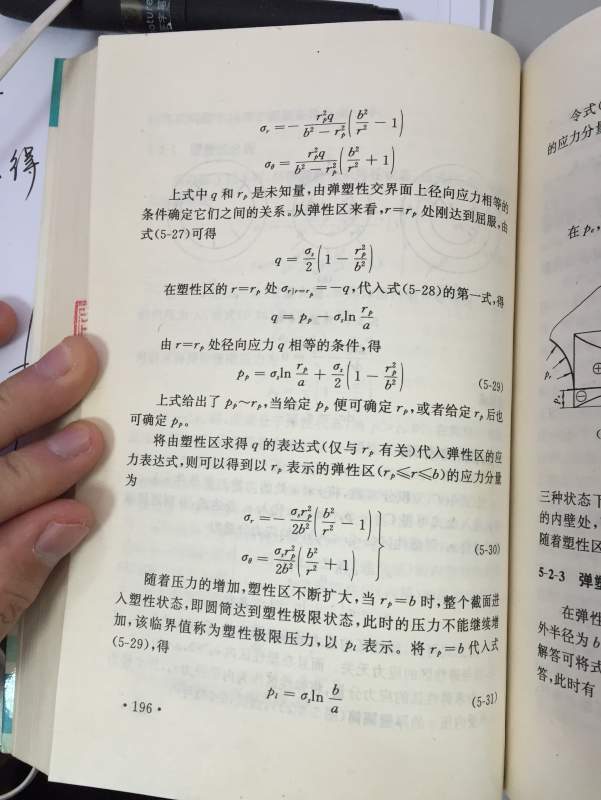 σ_r = - \frac{r_p^2 q}{b^2 - r_p^2} \left( \frac{b^2}{r^2} - 1 \right)
σ_θ = \frac{r_p^2 q}{b^2 - r_p^2} \left( \frac{b^2}{r^2} + 1 \right)
上式中 q 和 r_p 是未知量,由弹塑性交界面上径向应力相等的
条件确定它们之间的关系。从弹性区来看,r=r_p 处刚达到屈服,由
式(5-27)可得
q = \frac{σ_s}{2} \left( 1 - \frac{r_p^2}{b^2} \right)
在塑性区的 r=r_p 处 σ_{r|r=r_p}=-q,代入式(5-28)的第一式,得
q = p_p - σ_s ln \frac{r_p}{a}
由 r=r_p 处径向应力 q 相等的条件,得
p_p = σ_s ln \frac{r_p}{a} + \frac{σ_s}{2} \left( 1 - \frac{r_p^2}{b^2} \right) (5-29)
上式给出了 p_p～r_p,当给定 p_p 便可确定 r_p,或者给定 r_p 后也
可确定 p_p。
将由塑性区求得 q 的表达式(仅与 r_p 有关)代入弹性区的应
力表达式,则可以得到以 r_p 表示的弹性区(r_p≤r≤b)的应力分量
为
σ_r = - \frac{σ_s r_p^2}{2b^2} \left( \frac{b^2}{r^2} - 1 \right)
σ_θ = \frac{σ_s r_p^2}{2b^2} \left( \frac{b^2}{r^2} + 1 \right) (5-30)
随着压力的增加,塑性区不断扩大,当 r_p=b 时,整个截面进
入塑性状态,即圆筒达到塑性极限状态,此时的压力不能继续增
加,该临界值称为塑性极限压力,以 p_l 表示。将 r_p=b 代入式
(5-29),得
p_l = σ_s ln \frac{b}{a} (5-31)
·196·
得
令式(
的应力分量
在 p_e,
三种状态下
的内壁处,
随着塑性区
5-2-3 弹塑
在弹性
外半径为 b
解答可将式
答,此时有